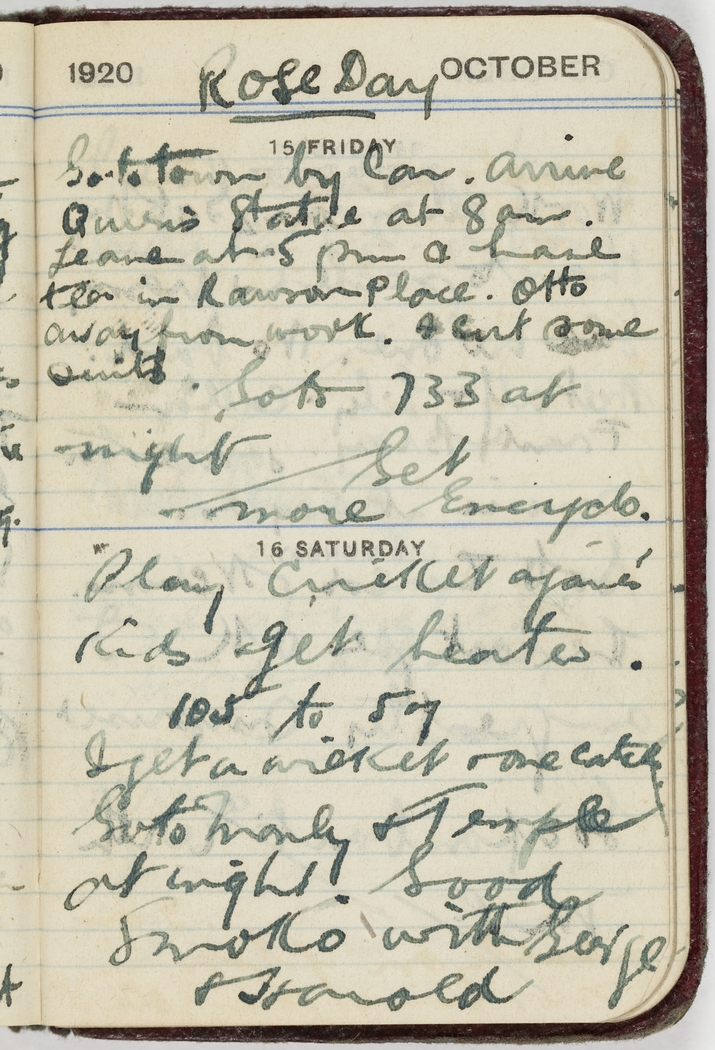 1920 Rose Day OCTOBER
15 FRIDAY
Go to town by Car. Arrive
Queens Statue at 8 am.
Leave at 5 pm & have
tea in Rawson Place. Otto
away from work. & cut some
. Goto 733 at
night Get
more Encyclo.
16 SATURDAY
Play Cricket against
Kids get beaten.
105 to 57
I get a wicket & one catch
Go to Manly & Temple
at night. Good
Smoko with George
& Harold